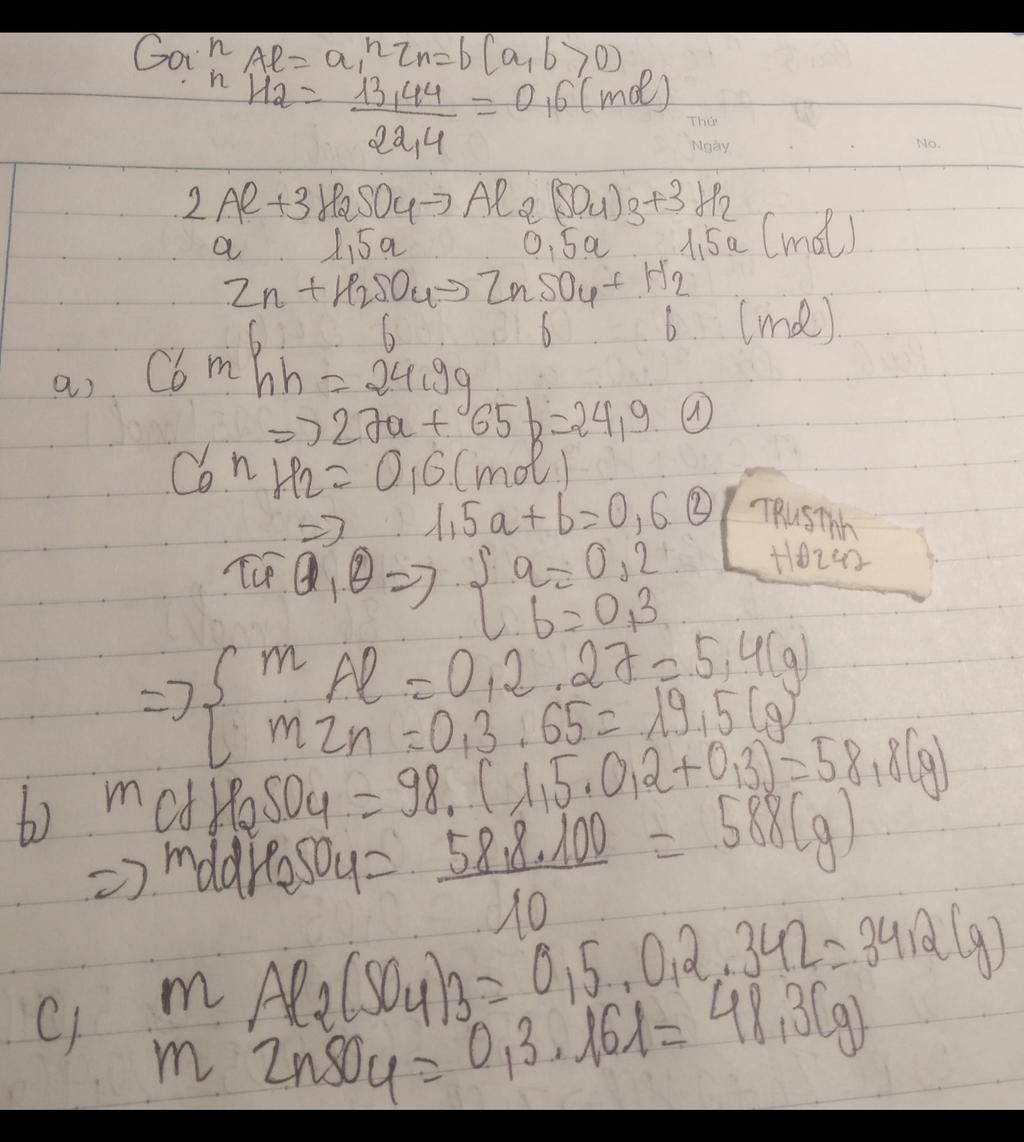 Gọi n Al = a, n Zn = b (a, b > 0)
n H2 = 13,44 / 22,4 = 0,6 (mol)
Thứ
Ngày . . No.
2 Al + 3 H2SO4 → Al2(SO4)3 + 3 H2
a 1,5a 0,5a 1,5a (mol)
Zn + H2SO4 → ZnSO4 + H2
b b b b (mol)
a, Có m hh = 24,9g
=> 27a + 65b = 24,9 ①
Có n H2 = 0,6 (mol)
=> 1,5a + b = 0,6 ②
TRUSThh
HD247
Từ ①, ② => { a = 0,2
b = 0,3
=> { m Al = 0,2 . 27 = 5,4 (g)
m Zn = 0,3 . 65 = 19,5 (g)
b) m ct H2SO4 = 98. (1,5. 0,2 + 0,3) = 58,8 (g)
=> mdd H2SO4 = 58,8 . 100 / 10 = 588 (g)
c, m Al2(SO4)3 = 0,5 . 0,2 . 342 = 34,2 (g)
m ZnSO4 = 0,3 . 161 = 48,3 (g)